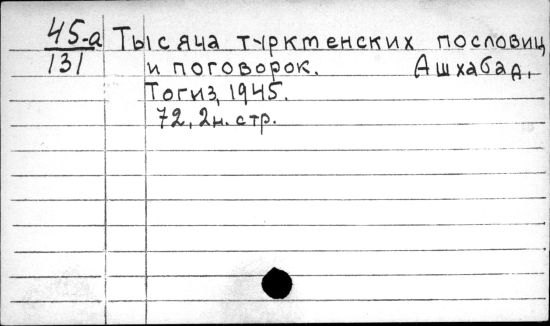 45-а Тысяча туркменских пословиц
131 и поговорок. Ашхабад,
Тогиз, 1945.
72, 2н. стр.